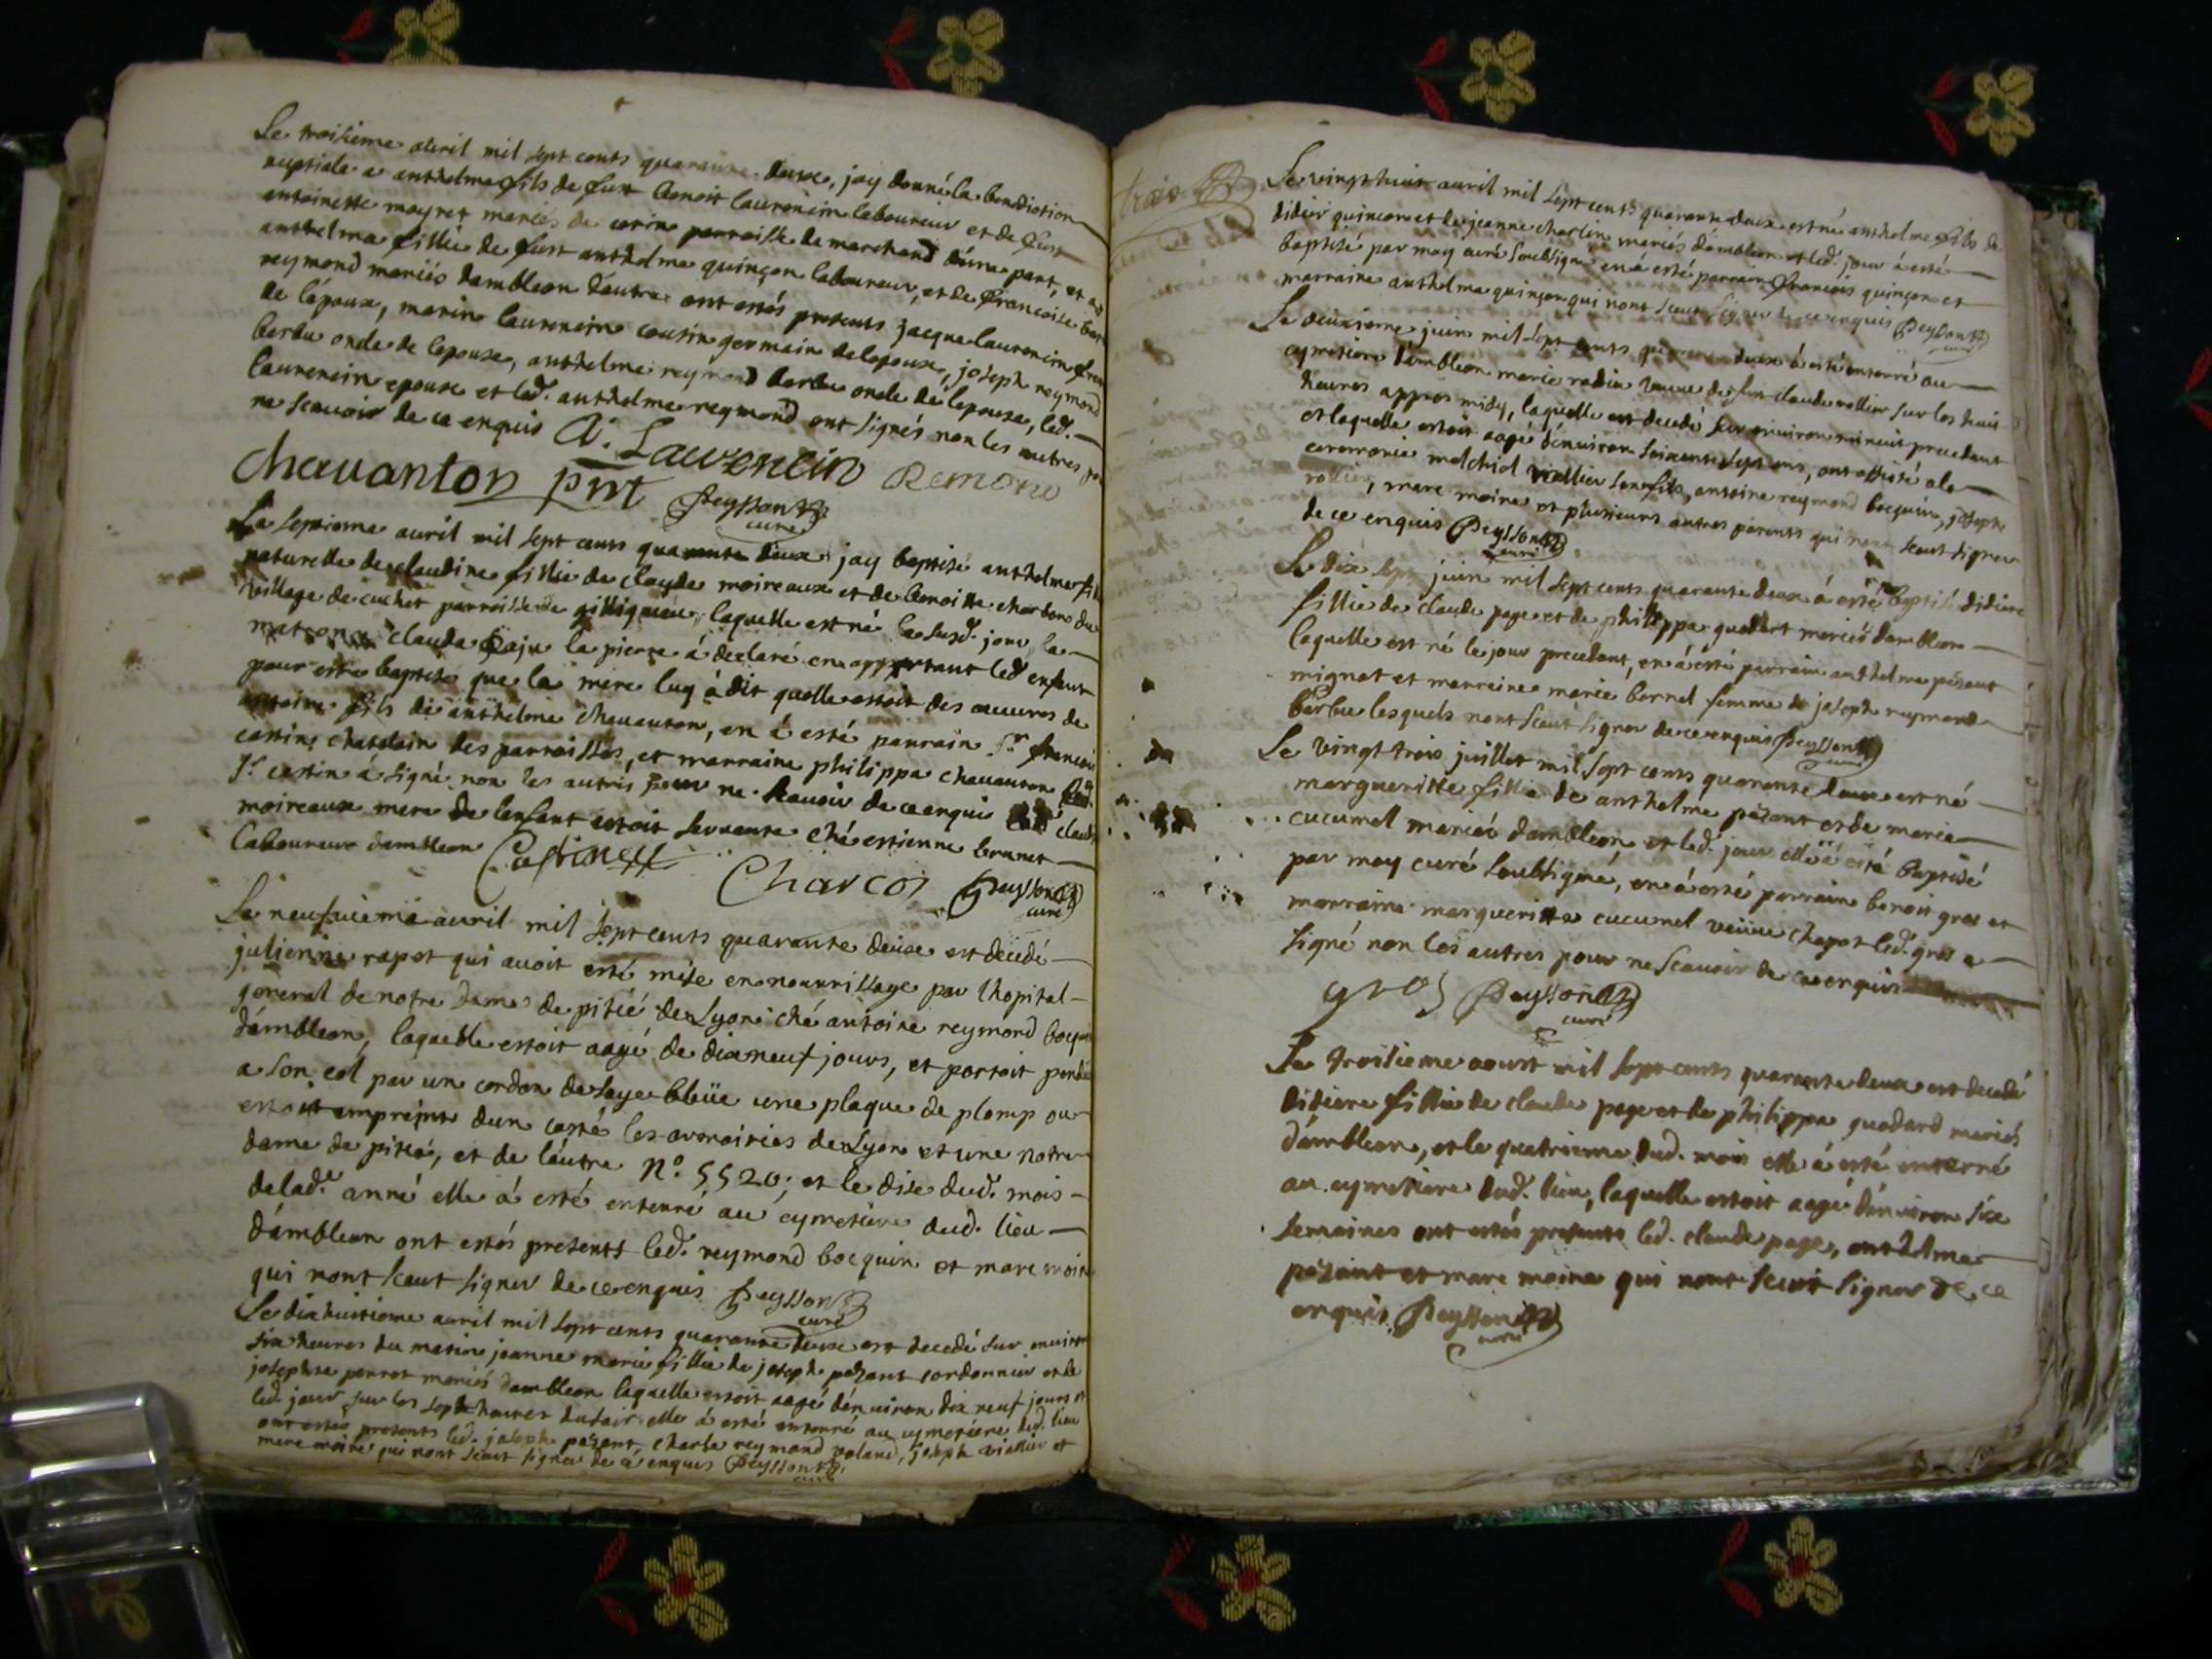 Le troisieme avril mil sept cents quarante deux, jay donné la benediction
nuptiale a anthelme fils de fust benoit laurencin laboureur et de fust
antoinette mayret mariés de cerin parroisse de marchand d'une part, et a
anthelma fillie de fust anthelme quinçon laboureur, et de francoise bar
reymond mariés dambleon dautre ont estés presents jacque laurencin frere
de lépoux, marin laurencin cousin germain de lepoux, joseph reymond
barbu oncle de lepouse, anthelme reymond barbu oncle de lepouse, led.
laurencin epoux et led. anthelme reymond ont signés non les autres po
ne scavoir de ce enquis A. Laurencin Remond
Chavanton pnt Peysson
curé
Le septieme avril mil sept cents quarante deux jay baptisé anthelme fils
naturelle de claudine fillie de claude moireaux et de benoitte charbon du
village de cuchet parroisse de gillignieu, laquelle est né le susd. jour, la
matrone clauda paju la pierre á declaré en apportant led enfant
pour estre baptisé que la mere luy á dit quelle estoit des œuvres de
antoine fils de anthelme chavanton, en á esté parrain Sr francois
castin chatelain des parroisses, et marraine philippa chavanton led.
Sr castin á signé non les autres pour ne scavoir de ce enquis lad claudi
moireaux mere de lenfant estoit servante ché estienne brunet
laboureur dambleon Castin Charcot Peysson
curé
Le neufvieme avril mil sept cents quarante deux est decedé
julienne rapot qui avoit esté mise en nourrissage par lhopital
general de notre dame de pitié de Lyon ché antoine reymond bocquin
dámbleon, laquelle estoit aagé de dixneuf jours, et portoit pendu
a son col par un cordon de soye bleüe une plaque de plomp ou
estoit empreint dun costé les armoiries de Lyon et une notre
dame de pitié, et de láutre N.º 5520; et le dixe dud. mois
de lad.e anné elle á esté enterré au cymetiere dud. lieu
dámbleon ont estés presents led. reymond bocquin et marc moine
qui nont sceut signer de ce enquis Peysson
curé
Le dixhuitieme avril mil sept cents quarante deux est decedé sur environ
six heures du matin jeanne marie fillie de joseph pézant cordonnier et de
josephte perrot mariés dambleon laquelle estoit aagé dénviron dix neuf jours et
led. jour sur les sept heures du soir elle á esté enterré au cymetiere dud. lieu
ont estés presents led. joseph pézant, charle reymond voland, joseph viollier et
marc moine qui nont sceut signer de cé enquis Peysson
curé
Le vingt huit avril mil sept cents quarante deux est né anthelme fils de
didier quincon et de jeanne charlin mariés dámbleon et led. jour á esté
baptisé par moy curé soubsigné en á esté parrain francois quinçon et
marraine anthelma quinçon qui nont sceut signer de ce enquis Peysson
curé
Le deuxieme juin mil sept cents quarante deux á esté enterré au
cymetiere dámbleon marie radix veuve de feu claude rollier sur les huit
heures appres midy, laquelle est decedé sur environ minuit precedant
et laquelle estoit aagé dénviron soixante sept ans, ont assisté a la
ceremonie melchiol viollier son fils, antoine reymond bocquin, joseph
rollier, marc moine et plusieurs autres parents qui nont sceut signer
de ce enquis Peysson
curé
Le dixe sept juin mil sept cents quarante deux á esté baptisé didiere
fillie de claude page et de philippa guedart mariés dambleon
laquelle est né le jour precedant, en á esté parrain anthelme pézant
mignot et marraine marie bornel femme de joseph reymond
barbu lesquels nont sceut signer de ce enquis Peysson
curé
Le vingt trois juillet mil sept cents quarante deux est né
margueritte fillie de anthelme pézant et de marie
cucumel mariés dambleon et led. jour elle á esté baptisé
par moy curé soubsigné, en á esté parrain benoit gros et
marraine margueritte cucumel veüve chapot led. gros a
signé non les autres pour ne scavoir de ce enquis
gros Peysson
curé
Le troisieme aoust mil sept cents quarante deux est decedé
didiere fillie de claude page et de philippa guedard mariés
dámbleon, et le quatrieme dud. mois elle á esté enterré
au cymetiere dud. lieu, laquelle estoit aagé dénviron six
semaines ont estés presents led. claude page, anthelme
pézant et marc moine qui nont sceut signer de ce
enquis Peysson
curé